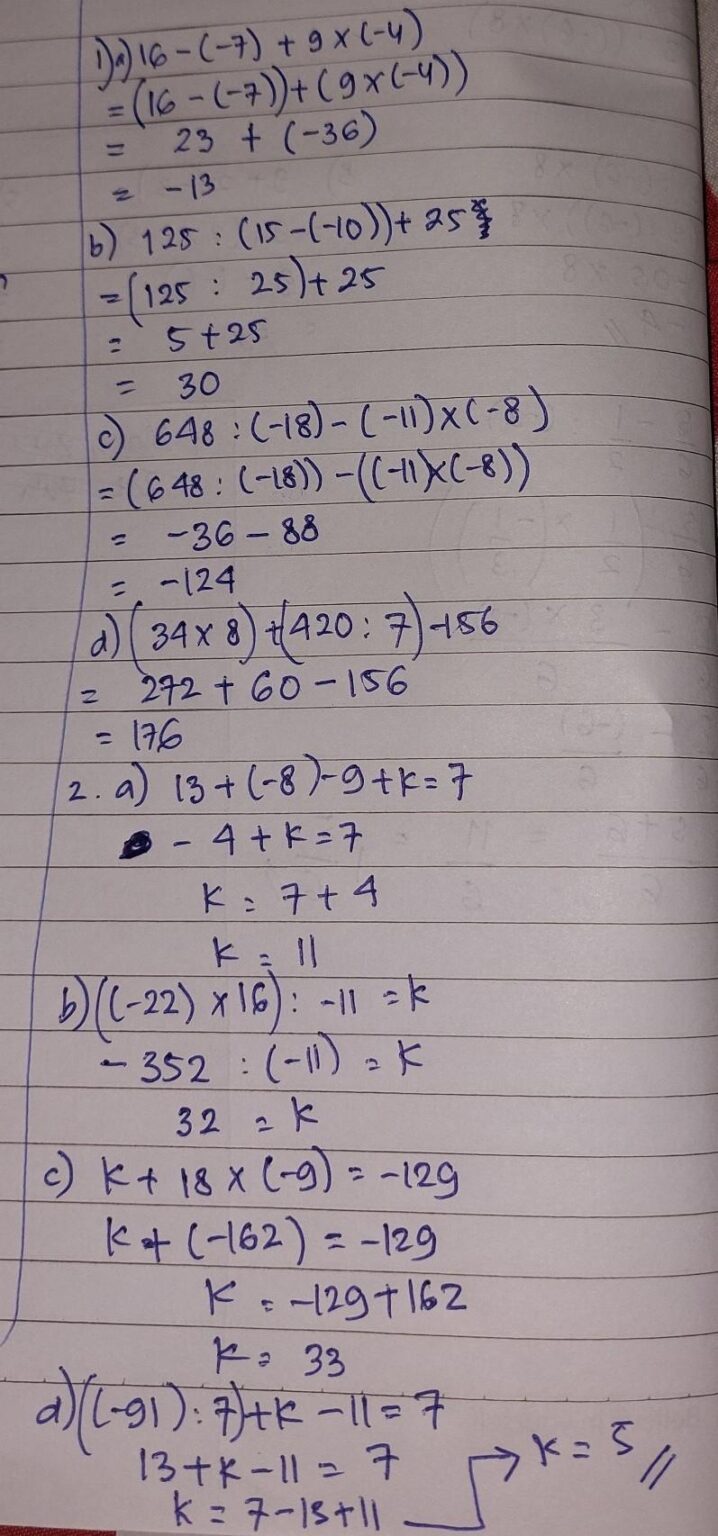 1) a) 16 - (-7) + 9 x (-4)
= (16 - (-7)) + (9 x (-4))
= 23 + (-36)
= -13
b) 125 : (15 - (-10)) + 25
= (125 : 25) + 25
= 5 + 25
= 30
c) 648 : (-18) - (-11) x (-8)
= (648 : (-18)) - ((-11) x (-8))
= -36 - 88
= -124
d) (34 x 8) + (420 : 7) - 156
= 272 + 60 - 156
= 176
2. a) 13 + (-8) - 9 + k = 7
- 4 + k = 7
k = 7 + 4
k = 11
b) ((-22) x 16) : -11 = k
- 352 : (-11) = k
32 = k
c) k + 18 x (-9) = -129
k + (-162) = -129
k = -129 + 162
k = 33
d) ((-91) : 7) + k - 11 = 7
13 + k - 11 = 7
k = 7 - 13 + 11 → k = 5 //